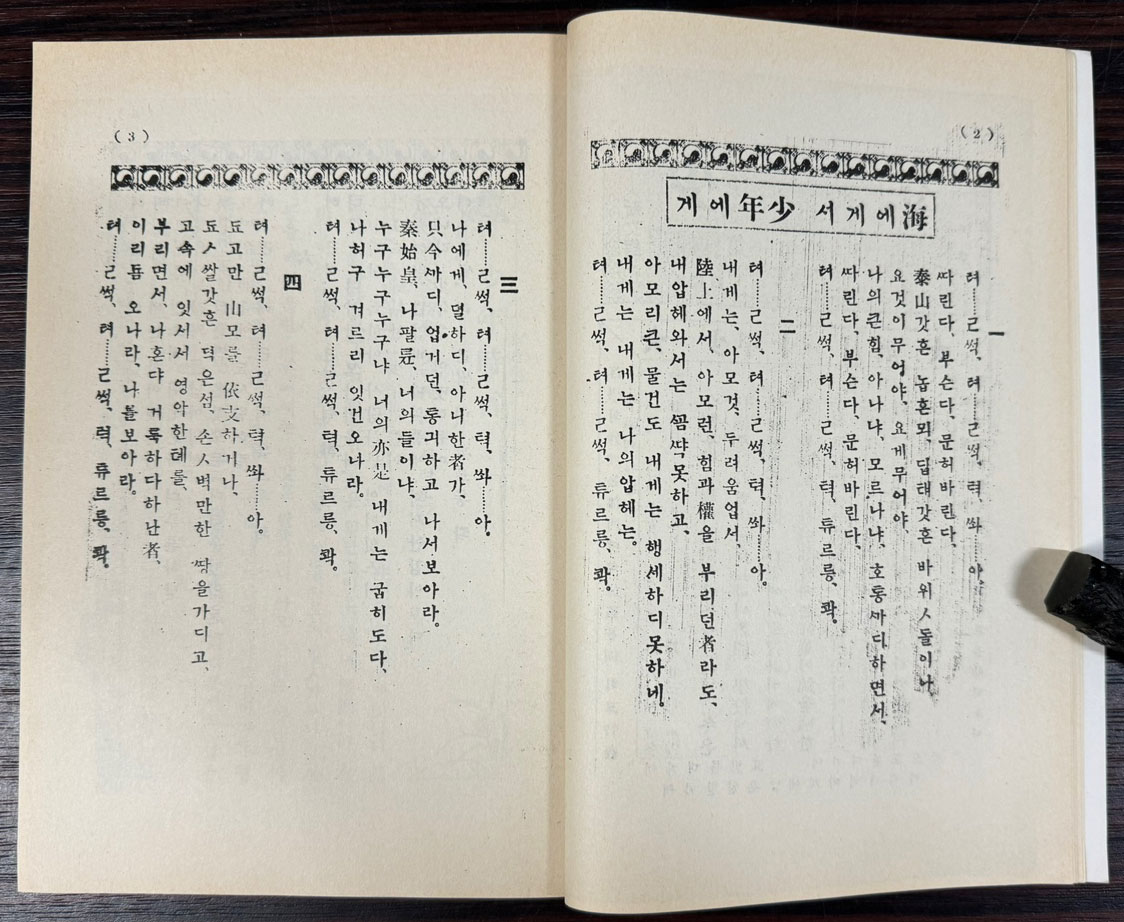 (2)
海에게서 少年에게
一
텨……ㄹ썩、텨……ㄹ썩、텩、쏴……아。
ᄯᅡ린다、부슨다、문허바린다、
泰山갓흔 놉흔뫼、딥태갓흔 바위ㅅ돌이나、
요것이무어야、요게무어야、
나의큰힘、아나냐、모르나냐、호통ᄭᅡ디하면서、
ᄯᅡ린다、부슨다、문허바린다、
텨……ㄹ썩、텨……ㄹ썩、텩、튜르릉、콱。
二
텨……ㄹ썩、텨……ㄹ썩、텩、쏴……아。
내게는、아모것、두려움업서、
陸上에서、아모런、힘과權을 부리던者라도、
내압헤와서는 ᄭᅩᆷᄶᅡᆨ못하고、
아모리큰、물건도 내게는 행세하디못하네。
내게는 내게는 나의압헤는。
텨……ㄹ썩、텨……ㄹ썩、텩、튜르릉、콱。
(3)
三
텨……ㄹ썩、텨……ㄹ썩、텩、쏴……아。
나에게、덜하디、아니한者가、
只今ᄭᅡ디、업거던、통긔하고 나서보아라。
秦始皇、나팔륜、너의들이냐、
누구누구누구냐 너의亦是 내게는 굽히도다、
나허구 겨르리 잇건오나라。
텨……ㄹ썩、텨……ㄹ썩、텩、튜르릉、콱。
四
텨……ㄹ썩、텨……ㄹ썩、텩、쏴……아。
됴고만 山모를 依支하거나、
됴ㅅ쌀갓흔 덕은섬、손ㅅ벽만한 ᄯᅡᆼ을가디고、
고속에 잇서서 영악한톄를、
부리면서、나혼댜 거룩하다하난者、
이리둄 오나라、나를보아라。
텨……ㄹ썩、텨……ㄹ썩、텩、튜르릉、콱。